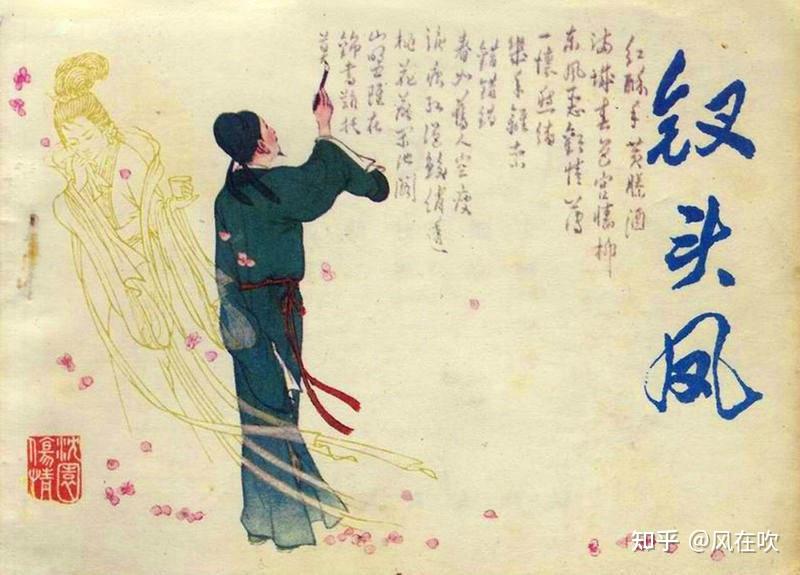 钗头凤
红酥手黄縢酒
满城春色宫墙柳
东风恶歡情薄
一懷愁绪
幾年離索
错错错
春如舊人空瘦
泪痕红浥鲛绡透
桃花落闲池阁
山盟雖在
錦書難托
莫
沈園
傷情
知乎 @风在吹